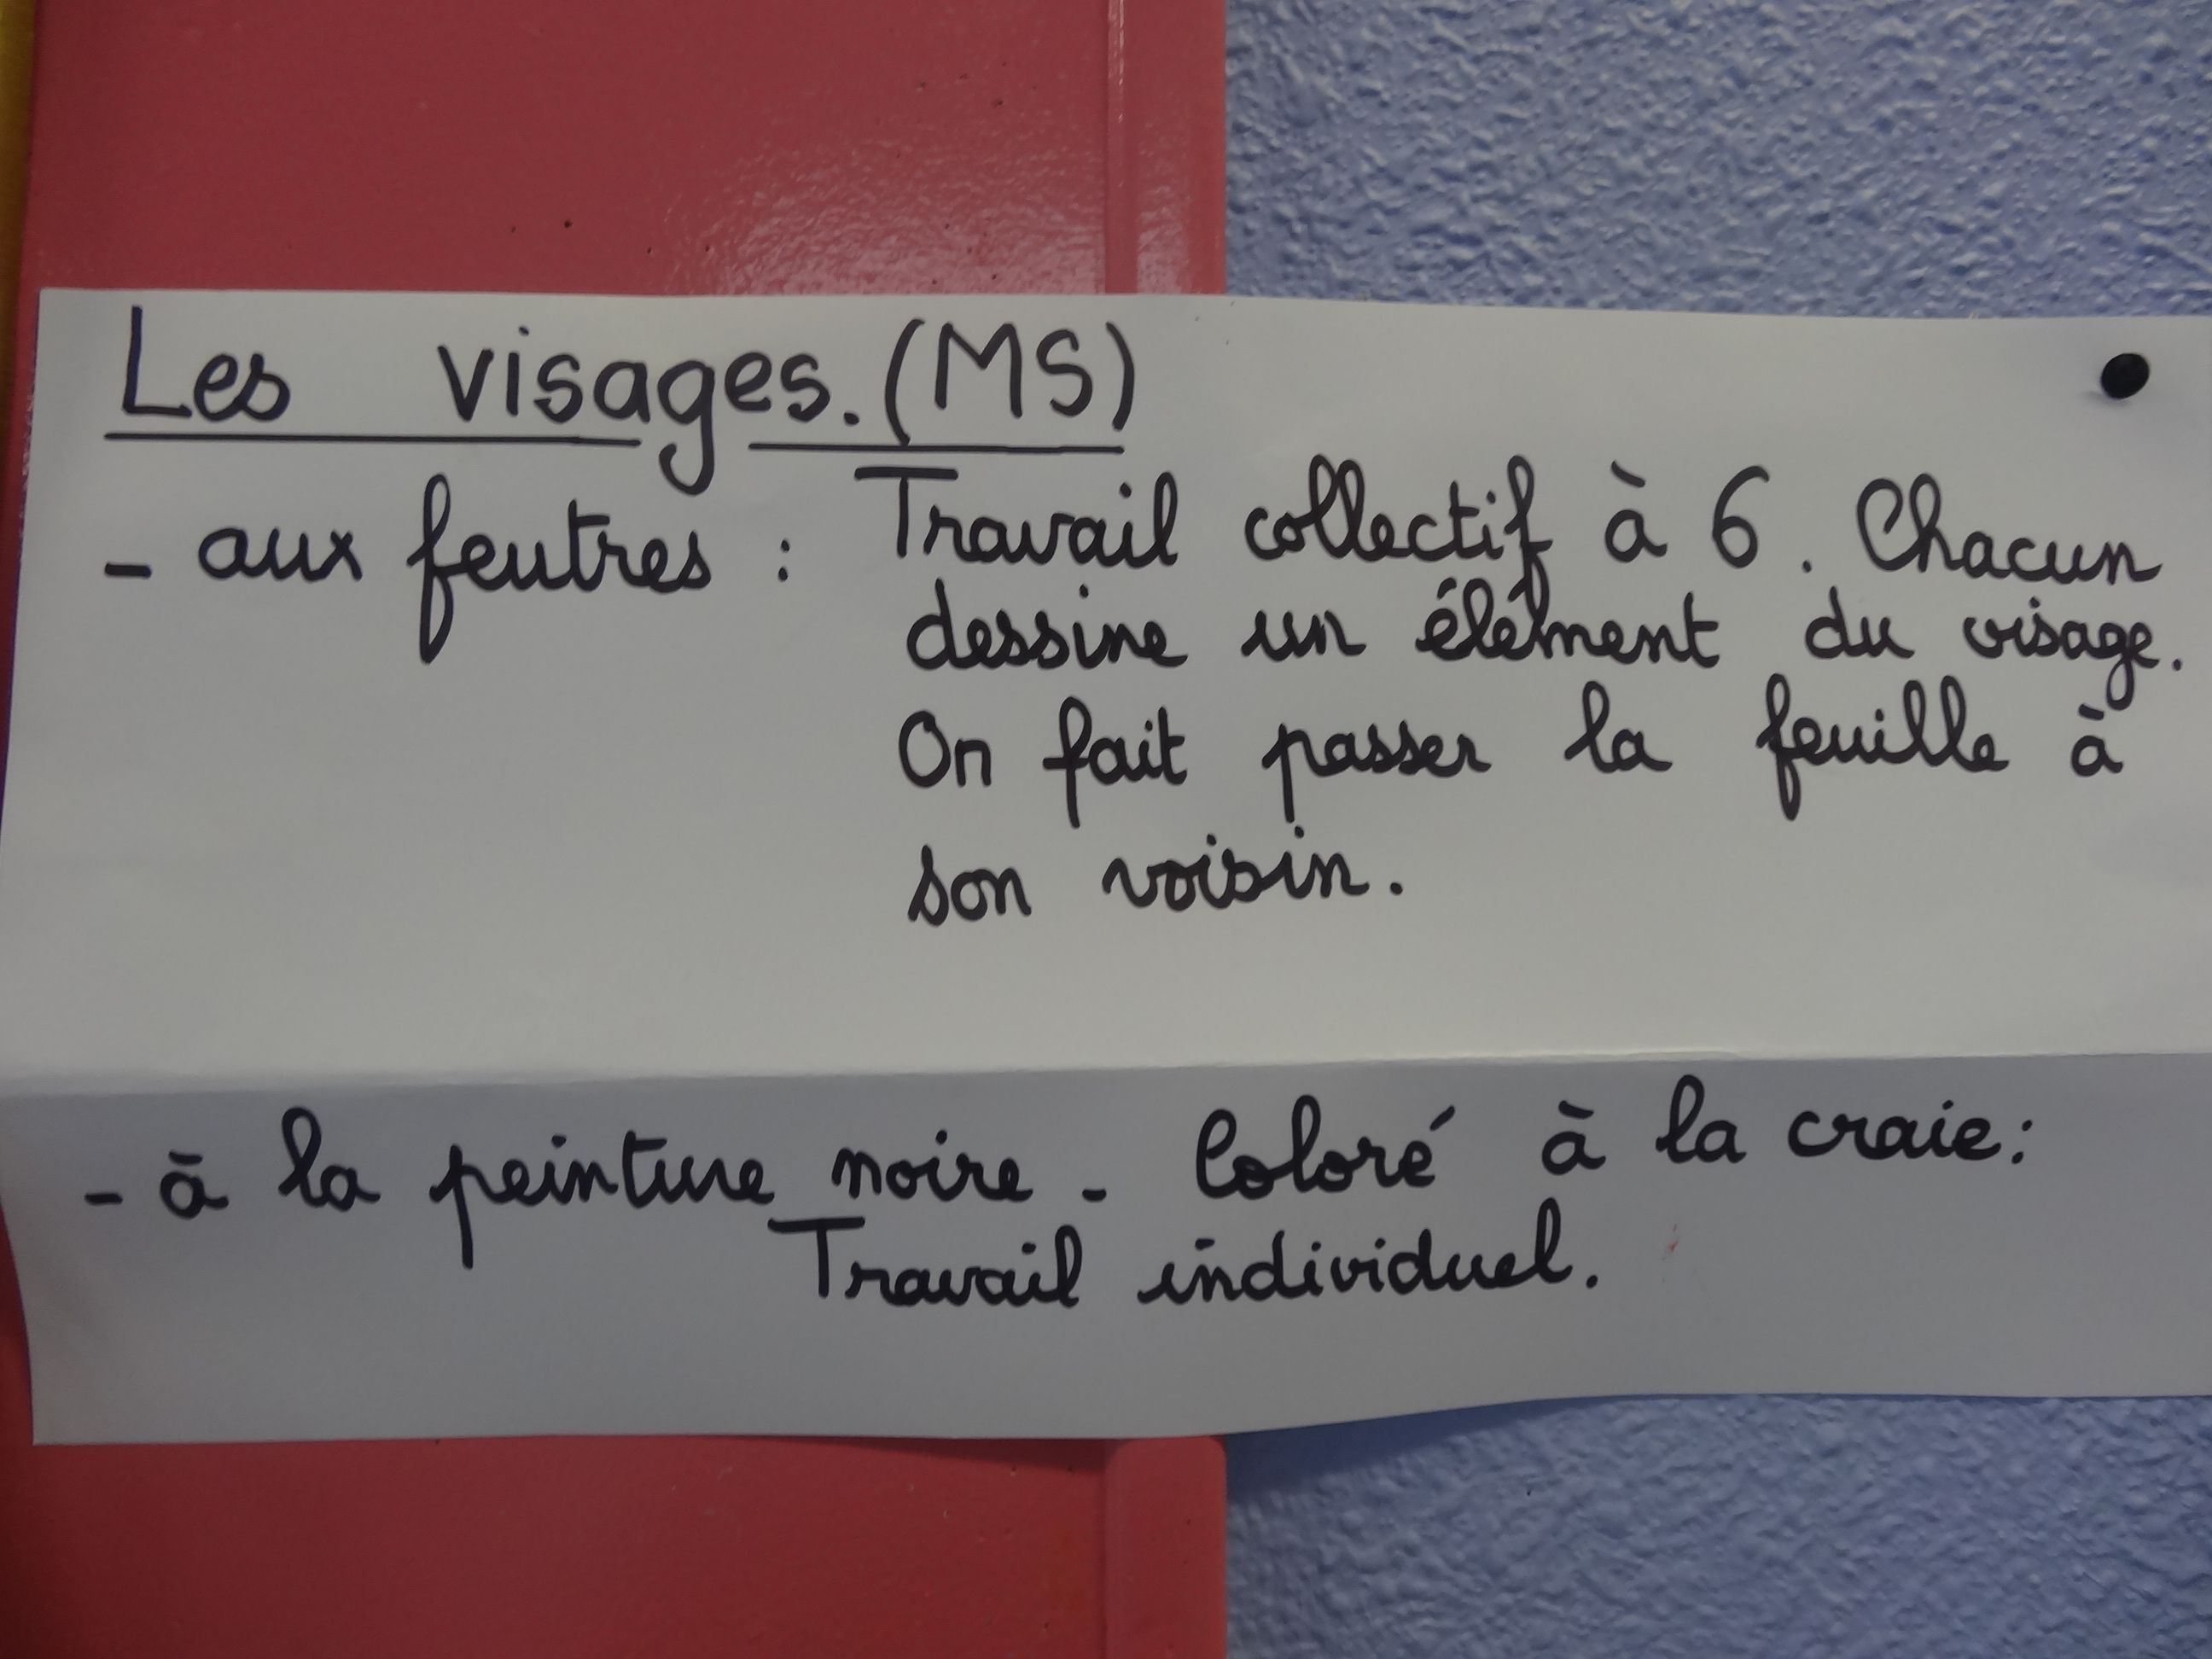 Les visages. (MS)
- aux feutres : Travail collectif à 6. Chacun
dessine un élément du visage.
On fait passer la feuille à
son voisin.
- à la peinture noire - Coloré à la craie:
Travail individuel.